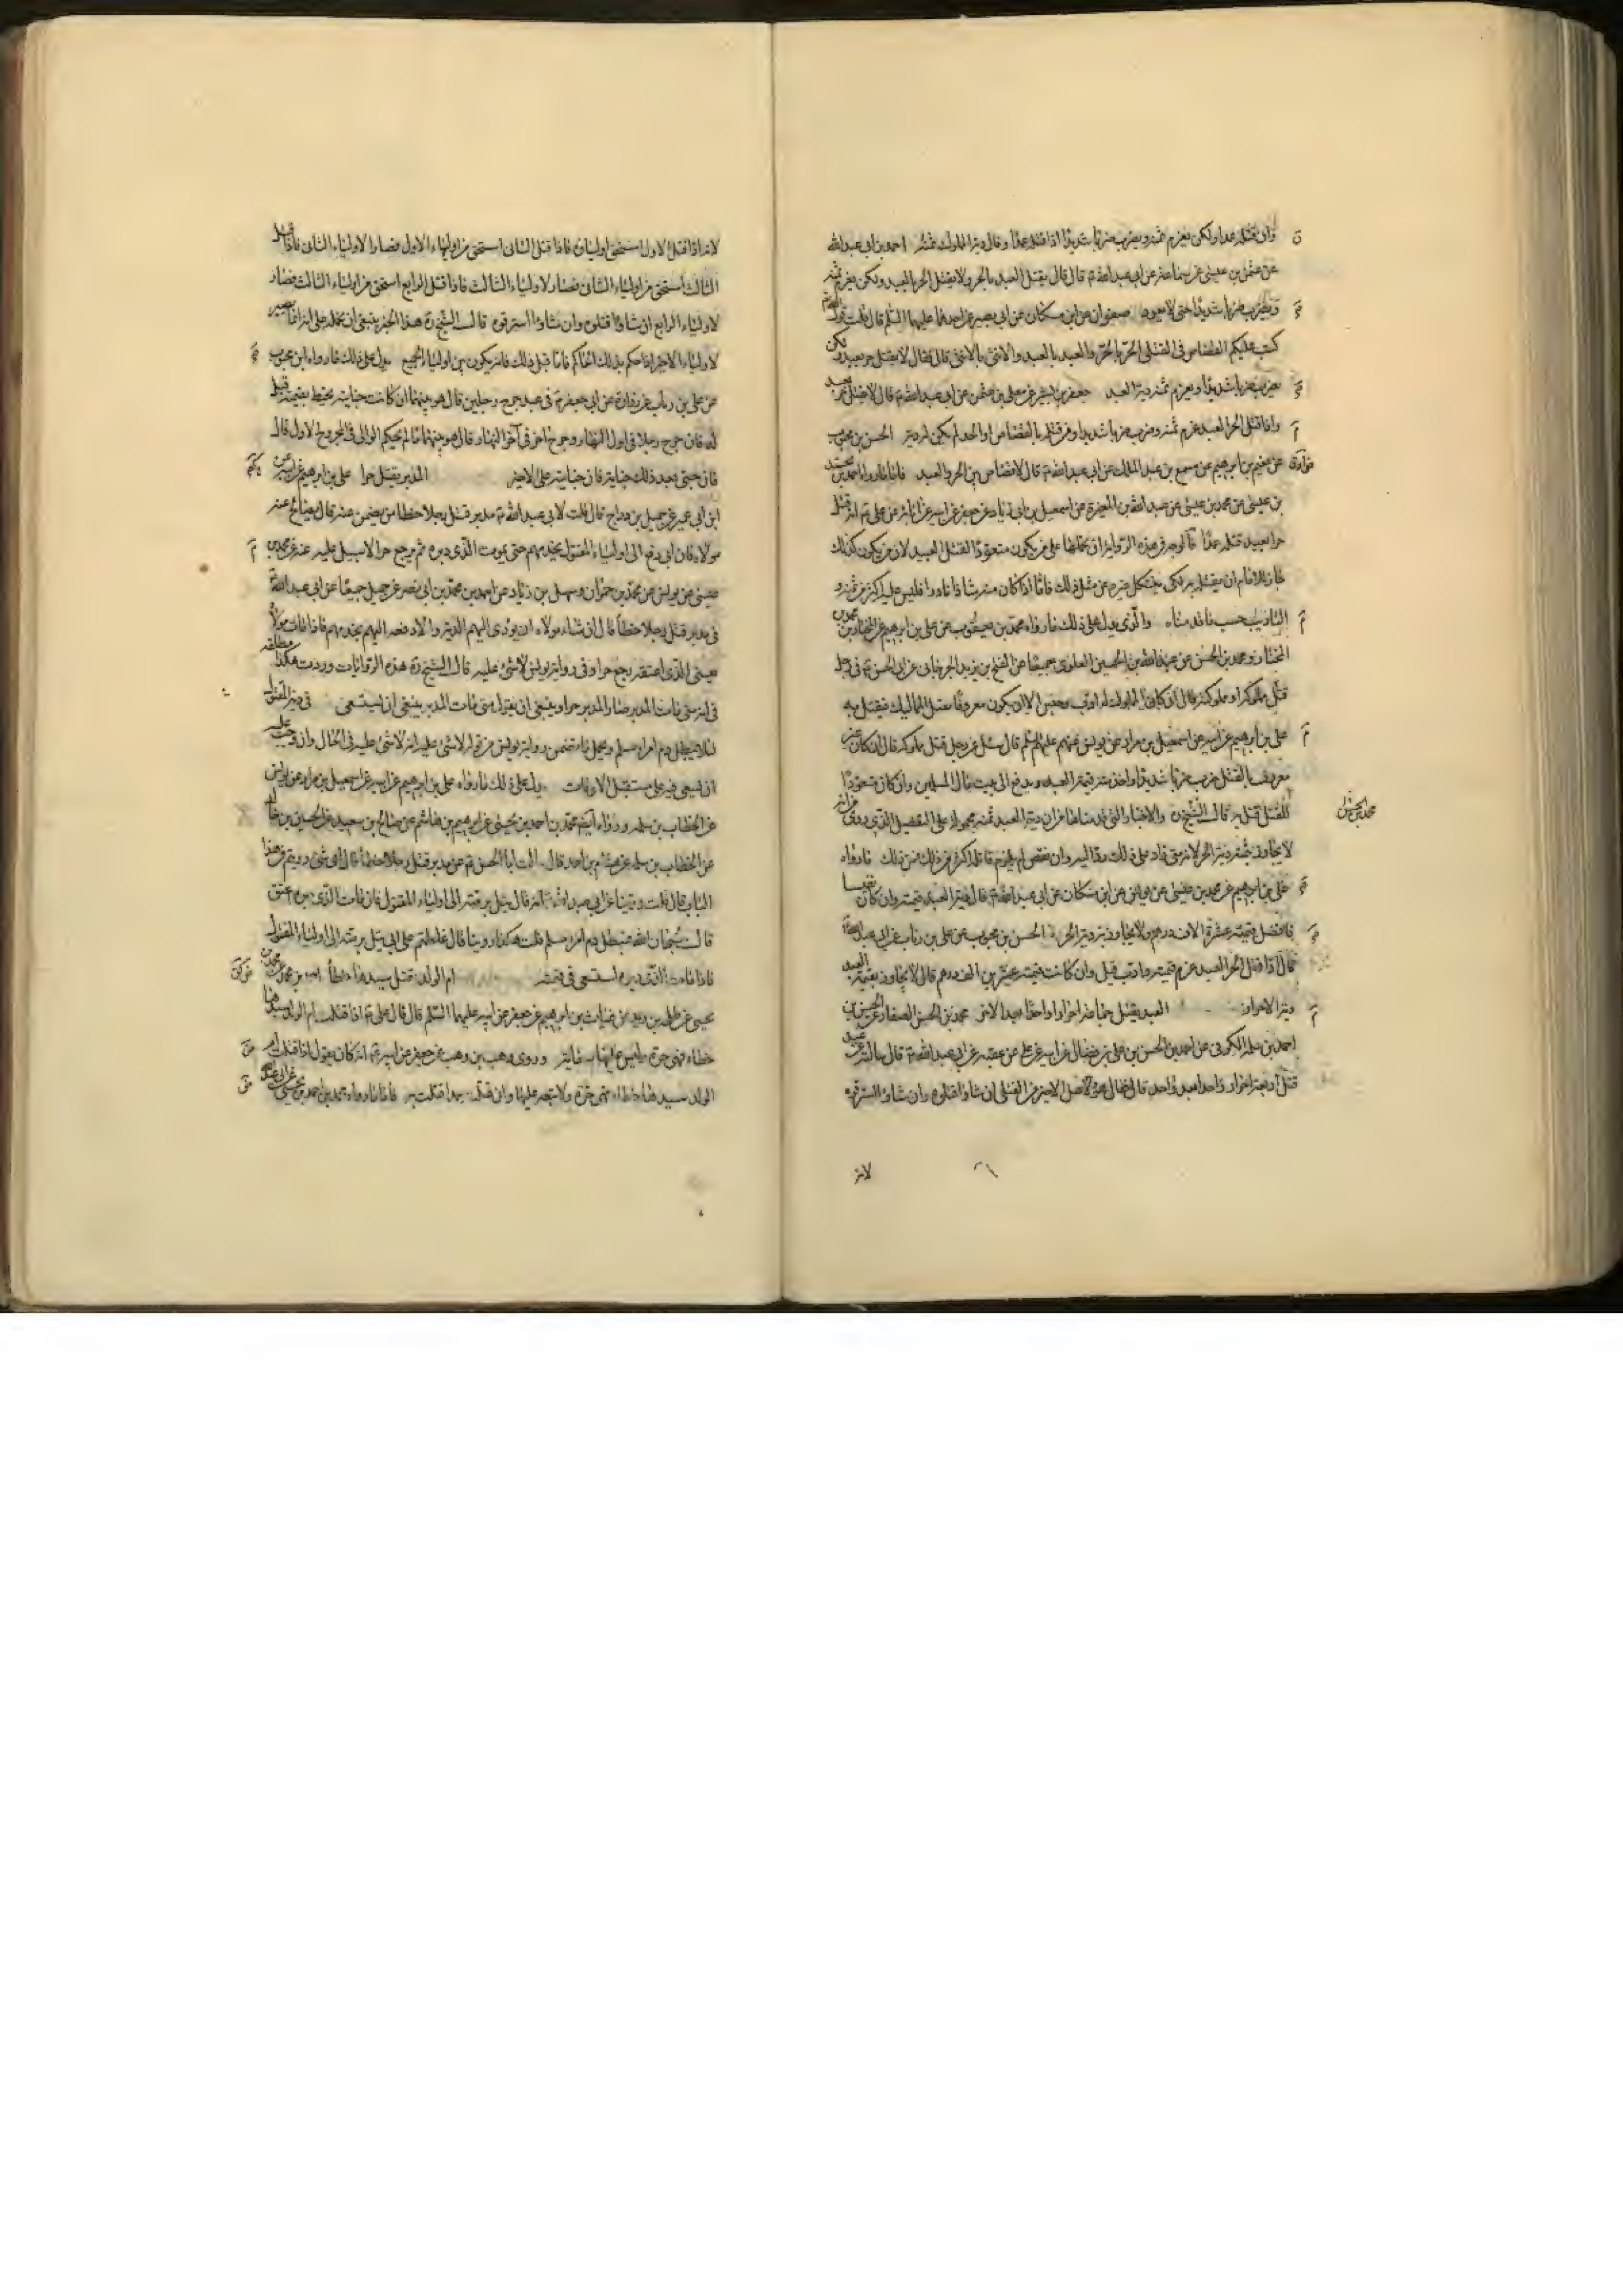 وان قتله عمدا ولكن يغرم ثمنه ويضرب ضربا شديدا اذا قتله عمدا وقال دية المملوك ثمنه احمد بن ابي عبدالله
عن عثمن بن عيسى عن سماعة عن ابي عبد الله ع قال قال يقتل العبد بالحر ولا يقتل الحر بالعبد ولكن يغرم ثمنه
ويضرب ضربا شديدا حتى لا يعود صفوان عن ابن مسكان عن ابي بصير عن احدهما عليهما السلم قال قلت قول
كتب عليكم القصاص في القتلى الحر بالحر والعبد بالعبد والانثى بالانثى قال فقال لا يقتل حر بعبد ولكن
يضرب ضربا شديدا ويغرم ثمنه دية العبد جعفر بن بشير عن معلى بن عثمن عن ابي عبد الله ع قال لا يقتل حر بعبد
واذا قتل الحر العبد غرم ثمنه وضرب ضربا شديدا ومن قتله بالقصاص او الحد لم يكن له دية الحسن بن محبوب
عن نعيم بن ابرهيم عن مسمع بن عبد الملك عن ابي عبد الله ع قال لا قصاص بين الحر والعبد فاما ما رواه احمد بن محمد
بن عيسى عن محمد بن عيسى عن عبد الله بن المغيرة عن اسمعيل بن ابي زياد عن جعفر عن ابيه عن آبائه عن علي ع انه قتل
حرا بعبد قتله عمدا فالوجه في هذه الرواية ان نحملها على من يكون متعودا لقتل العبيد لان من يكون كذلك
جاز للامام ان يقتله به لكي ينكل غيره عن مثل ذلك فاما اذا كان منه شاذا نادرا فليس عليه اكثر من ثمنه و
التاديب حسب ما قدمناه والذي يدل على ذلك ما رواه محمد بن يعقوب عن علي بن ابرهيم عن المختار بن محمد بن
المختار ومحمد بن الحسن عن عبد الله بن الحسين العلوي جميعا عن الفتح بن يزيد الجرجاني عن ابي الحسن ع في رجل
قتل مملوكه او مملوكته قال ان كان المملوك له ادب وحبس الا ان يكون معروفا بقتل المماليك فيقتل به
علي بن ابرهيم عن ابيه عن اسمعيل بن مرار عن يونس عنهم عليهم السلم قال سئل عن رجل قتل مملوكه قال ان كان غير
معروف بالقتل ضرب ضربا شديدا واخذ منه قيمة العبد ويدفع الى بيت مال المسلمين وان كان متعودا
للقتل قتل به قال الشيخ ره والاخبار التي قدمناها من ان دية العبد ثمنه محمولة على التفصيل الذي روي من انه
لا يجاوز بثمنه دية الحر لانه متى زاد على ذلك رد اليه وان نقص لم يلزم قاتله اكثر من ذلك فمن ذلك ما رواه
علي بن ابرهيم عن محمد بن عيسى عن يونس عن ابن مسكان عن ابي عبد الله ع قال دية العبد قيمته وان كان نفيسا
فافضل قيمته عشرة الاف درهم ولا يجاوز به دية الحر الحسن بن محبوب عن علي بن رئاب عن ابي عبد الله ع
قال اذا قتل الحر العبد غرم قيمته وادب قيل وان كانت قيمته عشرين الف درهم قال لا يجاوز بقيمة العبد
دية الاحرار العبد يقتل جماعة احرار او واحدا بعد الاخر محمد بن الحسن الصفار عن الحسن بن
احمد بن سلمة الكوفي عن احمد بن الحسن بن علي بن فضال عن ابيه عن علي بن عقبة عن ابي عبد الله ع قال سالته عن عبد
قتل اربعة احرار واحدا بعد واحد قال فقال هو لاهل الاخير من القتلى ان شاؤا قتلوه وان شاؤا استرقوه
لانه
محمد بن الحسن
لانه اذا قتل الاول استحق اولياؤه فاذا قتل الثاني استحق من اولياء الاول فصار لاولياء الثاني فاذا قتل
الثالث استحق من اولياء الثاني فصار لاولياء الثالث فاذا قتل الرابع استحق من اولياء الثالث فصار
لاولياء الرابع ان شاؤا قتلوه وان شاؤا استرقوه قال الشيخ ره هذا الخبر ينبغي ان نحمله على انه انما يصير
لاولياء الاخير اذا حكم بذلك الحاكم فاما قبل ذلك فانه يكون بين اولياء الجميع يدل على ذلك ما رواه ابن محبوب
عن علي بن رئاب عن زرارة عن ابي جعفر ع في عبد جرح رجلين قال هو بينهما ان كانت جنايته تحيط بقيمته قيل
له فان جرح رجلا في اول النهار وجرح اخر في آخر النهار قال هو بينهما ما لم يحكم الوالي في المجروح الاول قال
فان جنى بعد ذلك جناية فان جنايته على الاخير المدبر يقتل حرا علي بن ابرهيم عن ابيه عن
ابن ابي عمير عن جميل بن دراج قال قلت لابي عبد الله ع مدبر قتل رجلا خطا من يضمن عنه قال يصالح عنه
مولاه فان ابى دفع الى اولياء المقتول يخدمهم حتى يموت الذي دبره ثم يرجع حرا لا سبيل عليه عنه عن محمد بن
عيسى عن يونس عن محمد بن حمران وسهل بن زياد عن احمد بن محمد بن ابي نصر عن جميل جميعا عن ابي عبد الله ع
في مدبر قتل رجلا خطأ قال ان شاء مولاه ان يؤدي اليهم الدية والا دفعه اليهم يخدمهم فاذا مات مولاه
يعني الذي اعتقه رجع حرا وفي رواية يونس لا شئ عليه قال الشيخ ره هذه الروايات وردت هكذا مطلقة
في انه متى مات المدبر صار المدبر حرا وينبغي ان يقول متى مات المدبر ينبغي ان يستسعى في دية المقتول
لئلا يبطل دم امرء مسلم ويحمل ما تضمن رواية يونس من قوله لا شئ عليه انه لا شئ عليه في الحال وان وجب عليه
ان يسعى فيه على مستقبل الاوقات يدل على ذلك ما رواه علي بن ابرهيم عن ابيه عن اسمعيل بن مرار عن يونس
عن الخطاب بن سلمة ورواه ايضا محمد بن احمد بن يحيى عن ابرهيم بن هاشم عن صالح بن سعيد عن الحسين بن خالد
عن الخطاب بن سلمة عن هشام بن احمد قال سالت ابا الحسن ع عن مدبر قتل رجلا خطأ قال اي شئ رويتم في هذا
الباب قال قلت روينا عن ابي عبد الله ع انه قال يتل برمته الى اولياء المقتول فان مات الذي دبره عتق
قال سبحان الله فيبطل دم امرء مسلم قلت هكذا روينا قال غلطتم على ابي يتل برمته الى اولياء المقتول
فاذا مات الذي دبره استسعى في قيمته ام الولد تقتل سيدها خطأ احمد بن محمد عن محمد بن
يحيى عن طلحة بن زيد عن غياث بن ابرهيم عن جعفر عن ابيه عليهما السلم قال قال علي ع اذا قتلت ام الولد سيدها
خطاء فهي حرة ليس عليها سعاية وروى وهب بن وهب عن جعفر عن ابيه ع انه كان يقول اذا قتلت ام
الولد سيدها خطاء فهي حرة ولا تبعة عليها وان قتلته عمدا قتلت به فاما ما رواه محمد بن احمد بن يحيى عن ابي عبد الله